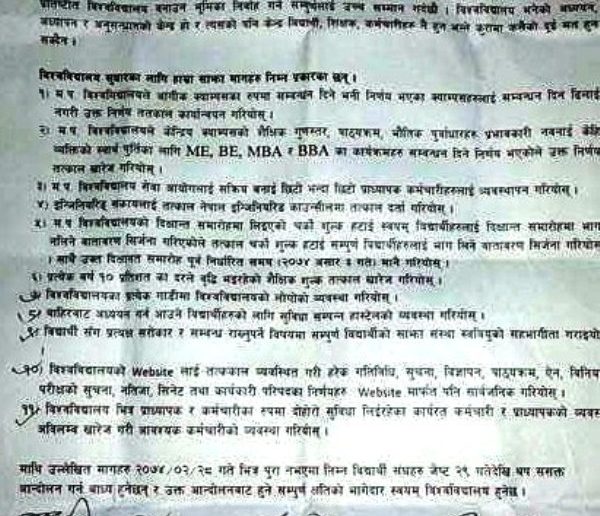 प्रतिष्ठित विश्वविद्यालय बनाउन भूमिका निर्वाह गर्ने सम्पूर्णलाई उच्च सम्मान गर्दछौ । विश्वविद्यालय भनेको अध्ययन,
अध्यापन र अनुसन्धानको केन्द्र हो र त्यसको पनि केन्द्र विद्यार्थी, शिक्षक, कर्मचारीहरू नै हुन भन्ने कुरामा कसैको दुई मत हुन
सक्दैन ।
विश्वविद्यालय सुधारका लागि हाम्रा साझा मागहरु निम्न प्रकारका छन् ।
१) म.प. विश्वविद्यालयले आंगीक क्याम्पसका रुपमा सम्बन्धन दिने भनी निर्णय भएका क्याम्पसहरुलाई सम्बन्धन दिन ढिलाई
नगरी उक्त निर्णय तत्काल कार्यान्वयन गरियोस् ।
२) म.प. विश्वविद्यालयले केन्द्रिय क्याम्पसको शैक्षिक गुणस्तर, पाठ्यक्रम, भौतिक पुर्वाधारहरु प्रभावकारी नबनाई केहि
व्यक्तिको स्वार्थ पुर्तिका लागि ME, BE, MBA र BBA का कार्यक्रमहरु सम्बन्धन दिने निर्णय भएकोले उक्त निर्णय
तत्काल खारेज गरियोस् ।
३) म.प. विश्वविद्यालय सेवा आयोगलाई सक्रिय बनाई छिटो भन्दा छिटो प्राध्यापक कर्मचारीहरुलाई व्यवस्थापन गरियोस् ।
४) इन्जिनियरिङ संकायलाई तत्काल नेपाल इन्जिनियरिङ काउन्सीलमा तत्काल दर्ता गरियोस् ।
५) म.प विश्वविद्यालयको दिक्षान्त समारोहमा लिइएको चर्को शुल्क हटाई स्वयम् विद्यार्थीहरुलाई दिक्षान्त समारोहमा भाग
नलिने वातावरण सिर्जना गरिएकोले तत्काल चर्को शुल्क हटाई सम्पुर्ण विद्यार्थीहरुलाई भाग लिने वातावरण सिर्जना गरियोस
। साथै उक्त दिक्षान्त समारोह पुर्व निर्धारित समय (२०७४ असार ३ गते) मानै गरियोस् ।
६) प्रत्येक वर्ष १० प्रतिशत का दरले वृद्धि भइरहेको शैक्षिक शुल्क तत्काल खारेज गरियोस् ।
७) विश्वविद्यालयका प्रत्येक गाडीमा विश्वविद्यालयको लोगोको व्यवस्था गरियोस् ।
८) बाहिरबाट अध्ययन गर्न आउने विद्यार्थीहरुको लागि सुविधा सम्पन्न हास्टेलको व्यवस्था गरियोस् ।
९) विद्यार्थी संग प्रत्यक्ष सरोकार र सम्बन्ध राख्नुपर्ने विषयमा सम्पुर्ण विद्यार्थीको साझा संस्था स्ववियुको सहभागीता गराइयो
१०) विश्वविद्यालयको Website लाई तत्काल व्यवस्थित गरी हरेक गतिविधि, सुचना, विज्ञापन, पाठ्यक्रम, ऐन, विनिय
परीक्षाको सुचना, नतिजा, सिनेट तथा कार्यकारी परिषदका निर्णयहरु Website मार्फत पनि सार्वजनिक गरियोस् ।
११) विश्वविद्यालय भित्र प्राध्यापक र कर्मचारीका रुपमा दोहोरो सुविधा लिईरहेका कार्यरत कर्मचारी र प्राध्यापकको व्यवस
अविलम्ब खारेज गरी आवश्यक कर्मचारीको व्यवस्था गरियोस् ।
माथि उल्लेखित मागहरु २०७४/०२/२८ गते भित्र पुरा नभएमा निम्न विद्यार्थी संघहरु जेष्ट २९ गतेदेखि थप सशक्त
आन्दोलन गर्न बाध्य हुनेछन् र उक्त आन्दोलनबाट हुने सम्पुर्ण क्षतिको भागेदार स्वयम् विश्वविद्यालय हुनेछ ।